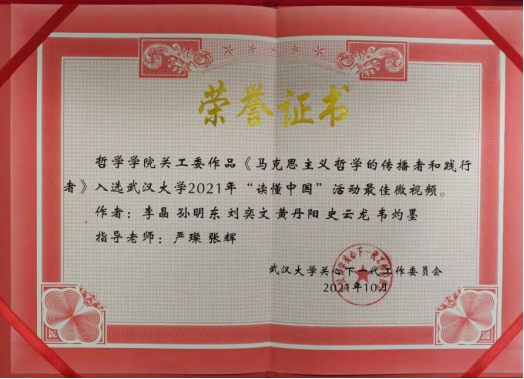 荣誉证书
哲学学院关工委作品《马克思主义哲学的传播者和践行
者》入选武汉大学2021年“读懂中国”活动最佳微视频。
作者：李晶 孙明东 刘奕文 黄丹阳 史云龙 韦灼墨
指导老师：严璨 张辉
武汉大学关心下一代工作委员会
2021年10月